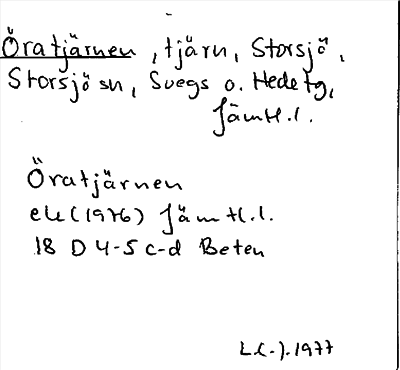 Öratjärnen, tjärn, Storsjö,
Storsjö sn, Svegs o. Hede tg,
Jämtl.l.
Öratjärnen
ek (1976) Jämtl.l.
18 D 4-5 c-d Beten
L.(-).1977